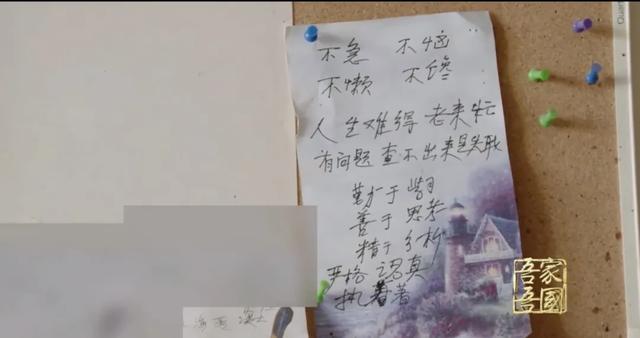 不急 不恼
不懒 不馋
人生难得 老来忙
有问题 查不出来是失职
勤于
善于 思考
精于 分析
严格 认真
执着
吾家
吾國